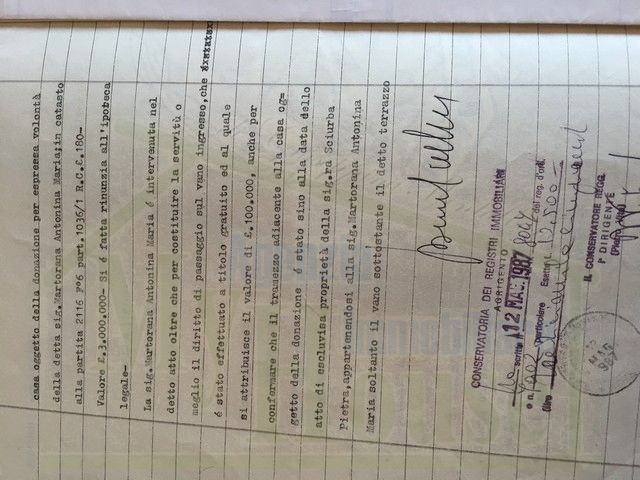 casa oggetto della donazione per espressa volontà
della detta sig.Martorana Antonina Maria:in catasto
alla partita 2116 f°6 part.1036/1 R.C.£.180-
Valore £.3.000.000- Si é fatta rinunzia all'ipoteca
legale-
La sig.Martorana Antonina Maria é intervenuta nel
detto atto oltre che per costituire la servitù o
meglio il diritto di passaggio sul vano ingresso,che
é stato effettuato a titolo gratuito ed al quale
si attribuisce il valore di £.100.000, anche per
confermare che il tramezzo adiacente alla casa og-
getto della donazione é stato sino alla data dello
atto di esclusiva proprietà della sig.ra Sciurba
Pietra,appartenendosi alla sig.Martorana Antonina
Maria soltanto il vano sottostante il detto terrazzo
CONSERVATORIA DEI REGISTRI IMMOBILIARI
AGRIGENTO
12 MAG. 1987
e n. particolare del reg. d'ord.
Esatte £. 12.500=
IL CONSERVATORE REGG.
1° DIRIGENTE